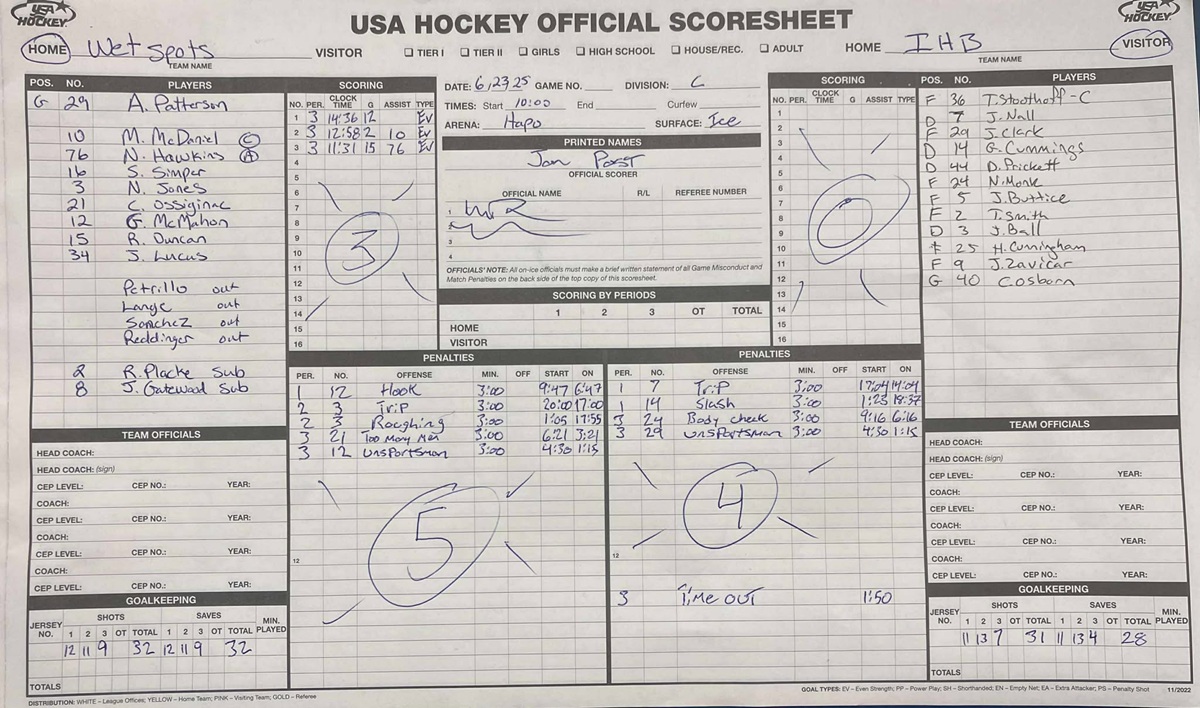 USA HOCKEY
USA HOCKEY OFFICIAL SCORESHEET
USA HOCKEY
HOME Wet Spots VISITOR ☐ TIER I ☐ TIER II ☐ GIRLS ☐ HIGH SCHOOL ☐ HOUSE/REC. ☐ ADULT HOME IHB VISITOR
TEAM NAME
TEAM NAME
POS. NO. PLAYERS
G 29 A. Patterson
10 M. McDaniel C
76 N. Hawkins A
16 S. Simper
3 N. Jones
21 C. Ossiginac
12 G. McMahon
15 R. Duncan
34 J. Lucus
Petrillo out
Lange out
Sanchez out
Reddinger out
2 R. Placke Sub
8 J. Gatewood Sub
SCORING
NO. PER. CLOCK TIME G ASSIST TYPE
1 3 14:36 12 EV
2 3 12:58 2 10 EV
3 3 11:31 15 76 EV
4
5
6
7
8
9
10
11
12
13
14
15
16
3
DATE: 6,23,25 GAME NO. DIVISION: C
TIMES: Start 10:00 End Curfew
ARENA: Hapo SURFACE: Ice
PRINTED NAMES
Jan Post
OFFICIAL SCORER
OFFICIAL NAME R/L REFEREE NUMBER
1
2
3
4
OFFICIALS' NOTE: All on-ice officials must make a brief written statement of all Game Misconduct and
Match Penalties on the back side of the top copy of this scoresheet.
SCORING BY PERIODS
1 2 3 OT TOTAL
HOME
VISITOR
SCORING
NO. PER. CLOCK TIME G ASSIST TYPE
1
2
3
4
5
6
7
8
9
10
11
12
13
14
15
16
0
POS. NO. PLAYERS
F 36 T. Stoothoff-C
D 7 J. Nall
F 29 J. Clark
D 14 G. Cummings
D 44 D. Prickett
F 24 N. Monk
F 5 J. Buttice
F 2 T. Smith
D 3 J. Ball
F 25 H. Cunningham
F 9 J. Zavicar
G 40 C. Osborn
PENALTIES
PER. NO. OFFENSE MIN. OFF START ON
1 12 Hook 3:00 9:47 6:47
2 3 Trip 3:00 20:00 17:00
2 3 Roughing 3:00 1:05 17:55
3 21 Too Many Men 3:00 6:21 3:21
3 12 Unsportsman 3:00 4:30 1:15
12
5
PENALTIES
PER. NO. OFFENSE MIN. OFF START ON
1 7 Trip 3:00 17:04 14:04
1 14 Slash 3:00 1:23 18:37
3 24 Body check 3:00 9:16 6:16
3 29 Unsportsman 3:00 4:30 1:15
12
4
3 Time OUT 1:50
TEAM OFFICIALS
HEAD COACH:
HEAD COACH: (sign)
CEP LEVEL: CEP NO.: YEAR:
COACH:
CEP LEVEL: CEP NO.: YEAR:
COACH:
CEP LEVEL: CEP NO.: YEAR:
COACH:
CEP LEVEL: CEP NO.: YEAR:
GOALKEEPING
JERSEY NO. SHOTS SAVES MIN. PLAYED
1 2 3 OT TOTAL 1 2 3 OT TOTAL
12 11 9 32 12 11 9 32
TOTALS
TEAM OFFICIALS
HEAD COACH:
HEAD COACH: (sign)
CEP LEVEL: CEP NO.: YEAR:
COACH:
CEP LEVEL: CEP NO.: YEAR:
COACH:
CEP LEVEL: CEP NO.: YEAR:
COACH:
CEP LEVEL: CEP NO.: YEAR:
GOALKEEPING
JERSEY NO. SHOTS SAVES MIN. PLAYED
1 2 3 OT TOTAL 1 2 3 OT TOTAL
11 13 7 31 11 13 4 28
TOTALS
DISTRIBUTION: WHITE – League Offices; YELLOW – Home Team; PINK – Visiting Team; GOLD – Referee
GOAL TYPES: EV – Even Strength; PP – Power Play; SH – Shorthanded; EN – Empty Net; EA – Extra Attacker; PS – Penalty Shot 11/2022